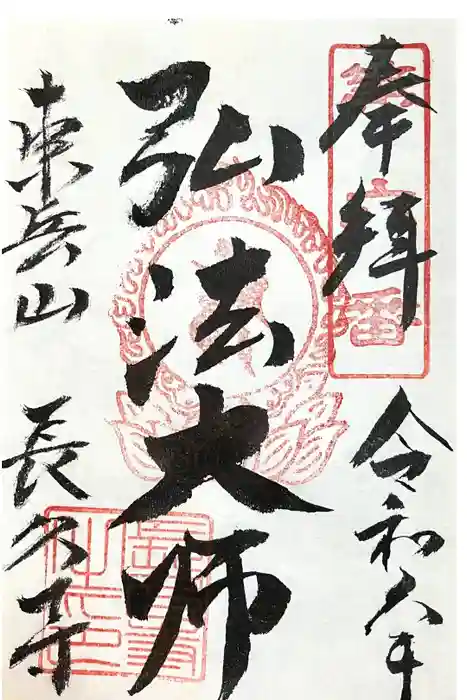 奉拝
令和六年
弘法大師
東岳山
長久寺